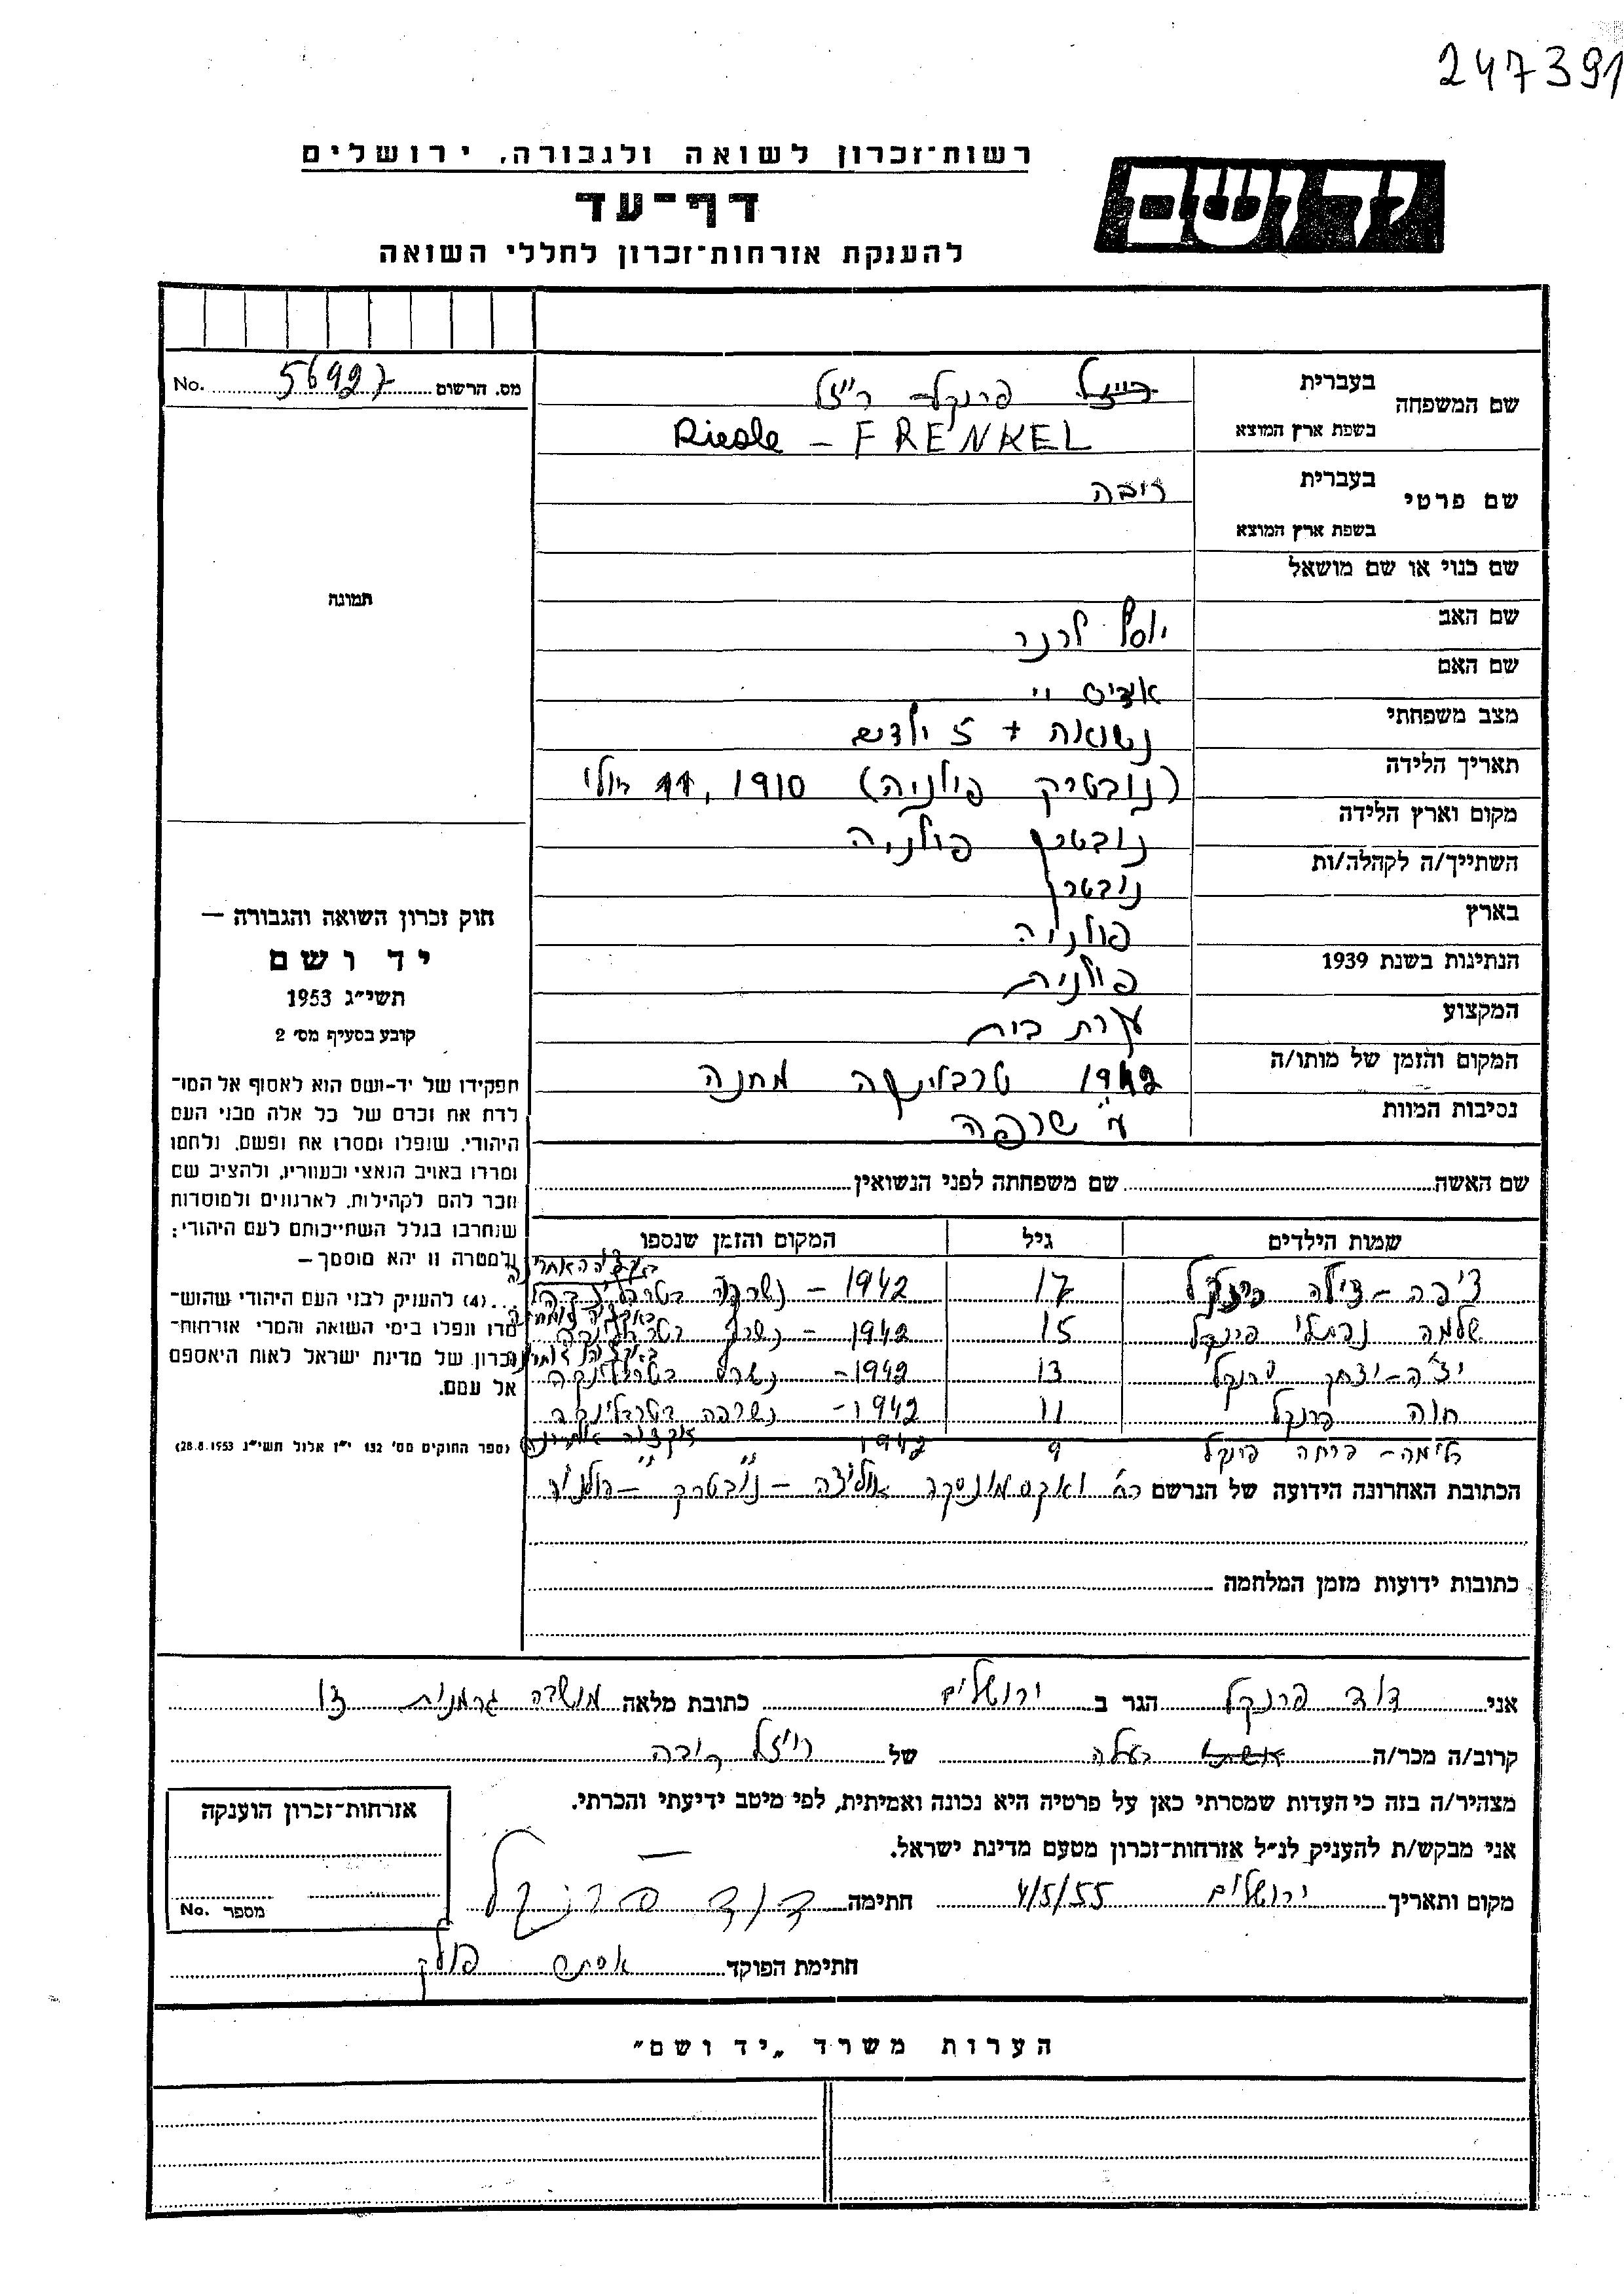 247391
רשות־זכרון לשואה ולגבורה, ירושלים
יד ושם
דף־עד
להענקת אזרחות־זכרון לחללי השואה
מס. הרשום 56927 No.
שם המשפחה
בעברית פרנקל - רייזל
בשפת ארץ המוצא Riesle - FRENKEL
שם פרטי
בעברית ריבה
בשפת ארץ המוצא
שם כנוי או שם מושאל
שם האב יוסף לרנר
שם האם
מצב משפחתי נשואה + 5 ילדים
תאריך הלידה (נובטרק פולניה) 1910, 11 יולי
מקום וארץ הלידה נובטרק פולניה
השתייך/ה לקהלה/ות נובטרק
בארץ פולניה
הנתינות בשנת 1939 פולנית
המקצוע עקרת בית
המקום והזמן של מותו/ה 1942 טרבלינקה מחנה
נסיבות המוות ע"י שרפה
תמונה
חוק זכרון השואה והגבורה —
יד ושם
תשי״ג 1953
קובע בסעיף מס׳ 2
תפקידו של יד-ושם הוא לאסוף אל המו־
לדת את זכרם של כל אלה מבני העם
היהודי, שנפלו ומסרו את נפשם, נלחמו
ומרדו באויב הנאצי ובעוזריו, ולהציב שם
וזכר להם לקהילות, לארגונים ולמוסדות
שנחרבו בגלל השתייכותם לעם היהודי;
ולמטרה זו יהא מוסמך—
...(4) להעניק לבני העם היהודי שהוש־
מדו ונפלו בימי השואה והמרי אזרחות־
זכרון של מדינת ישראל לאות היאספם
אל עמם.
(ספר החוקים מס׳ 132 י״ז אלול תשי״ג 28.8.1953)
שם האשה שם משפחתה לפני הנשואין
שמות הילדים גיל המקום והזמן שנספו
ציפה - צילה פרנקל 17 1942 - נשרפה בטרבלינקה
שלמה נפתלי פרנקל 15 1942 - נשרף בטרבלינקה
יצחק פרנקל 13 1942 - נשרף בטרבלינקה
חוה פרנקל 11 1942 - נשרפה בטרבלינקה
פרנקל 9 1942 " "
הכתובת האחרונה הידועה של הנרשם רח' אוליצה - נובטרק - פולניה
כתובות ידועות מזמן המלחמה
אני דוד פרנקל הגר ב ירושלים כתובת מלאה מושבה גרמנית 13
קרוב/ה מכר/ה בעלה של רייזל ריבה
מצהיר/ה בזה כי העדות שמסרתי כאן על פרטיה היא נכונה ואמיתית, לפי מיטב ידיעתי והכרתי.
אני מבקש/ת להעניק לנ״ל אזרחות־זכרון מטעם מדינת ישראל.
מקום ותאריך ירושלים 4/5/55 חתימה דוד פרנקל
חתימת הפוקד אסתר פולק
אזרחות־זכרון הוענקה
מספר No.
הערות משרד „יד ושם״